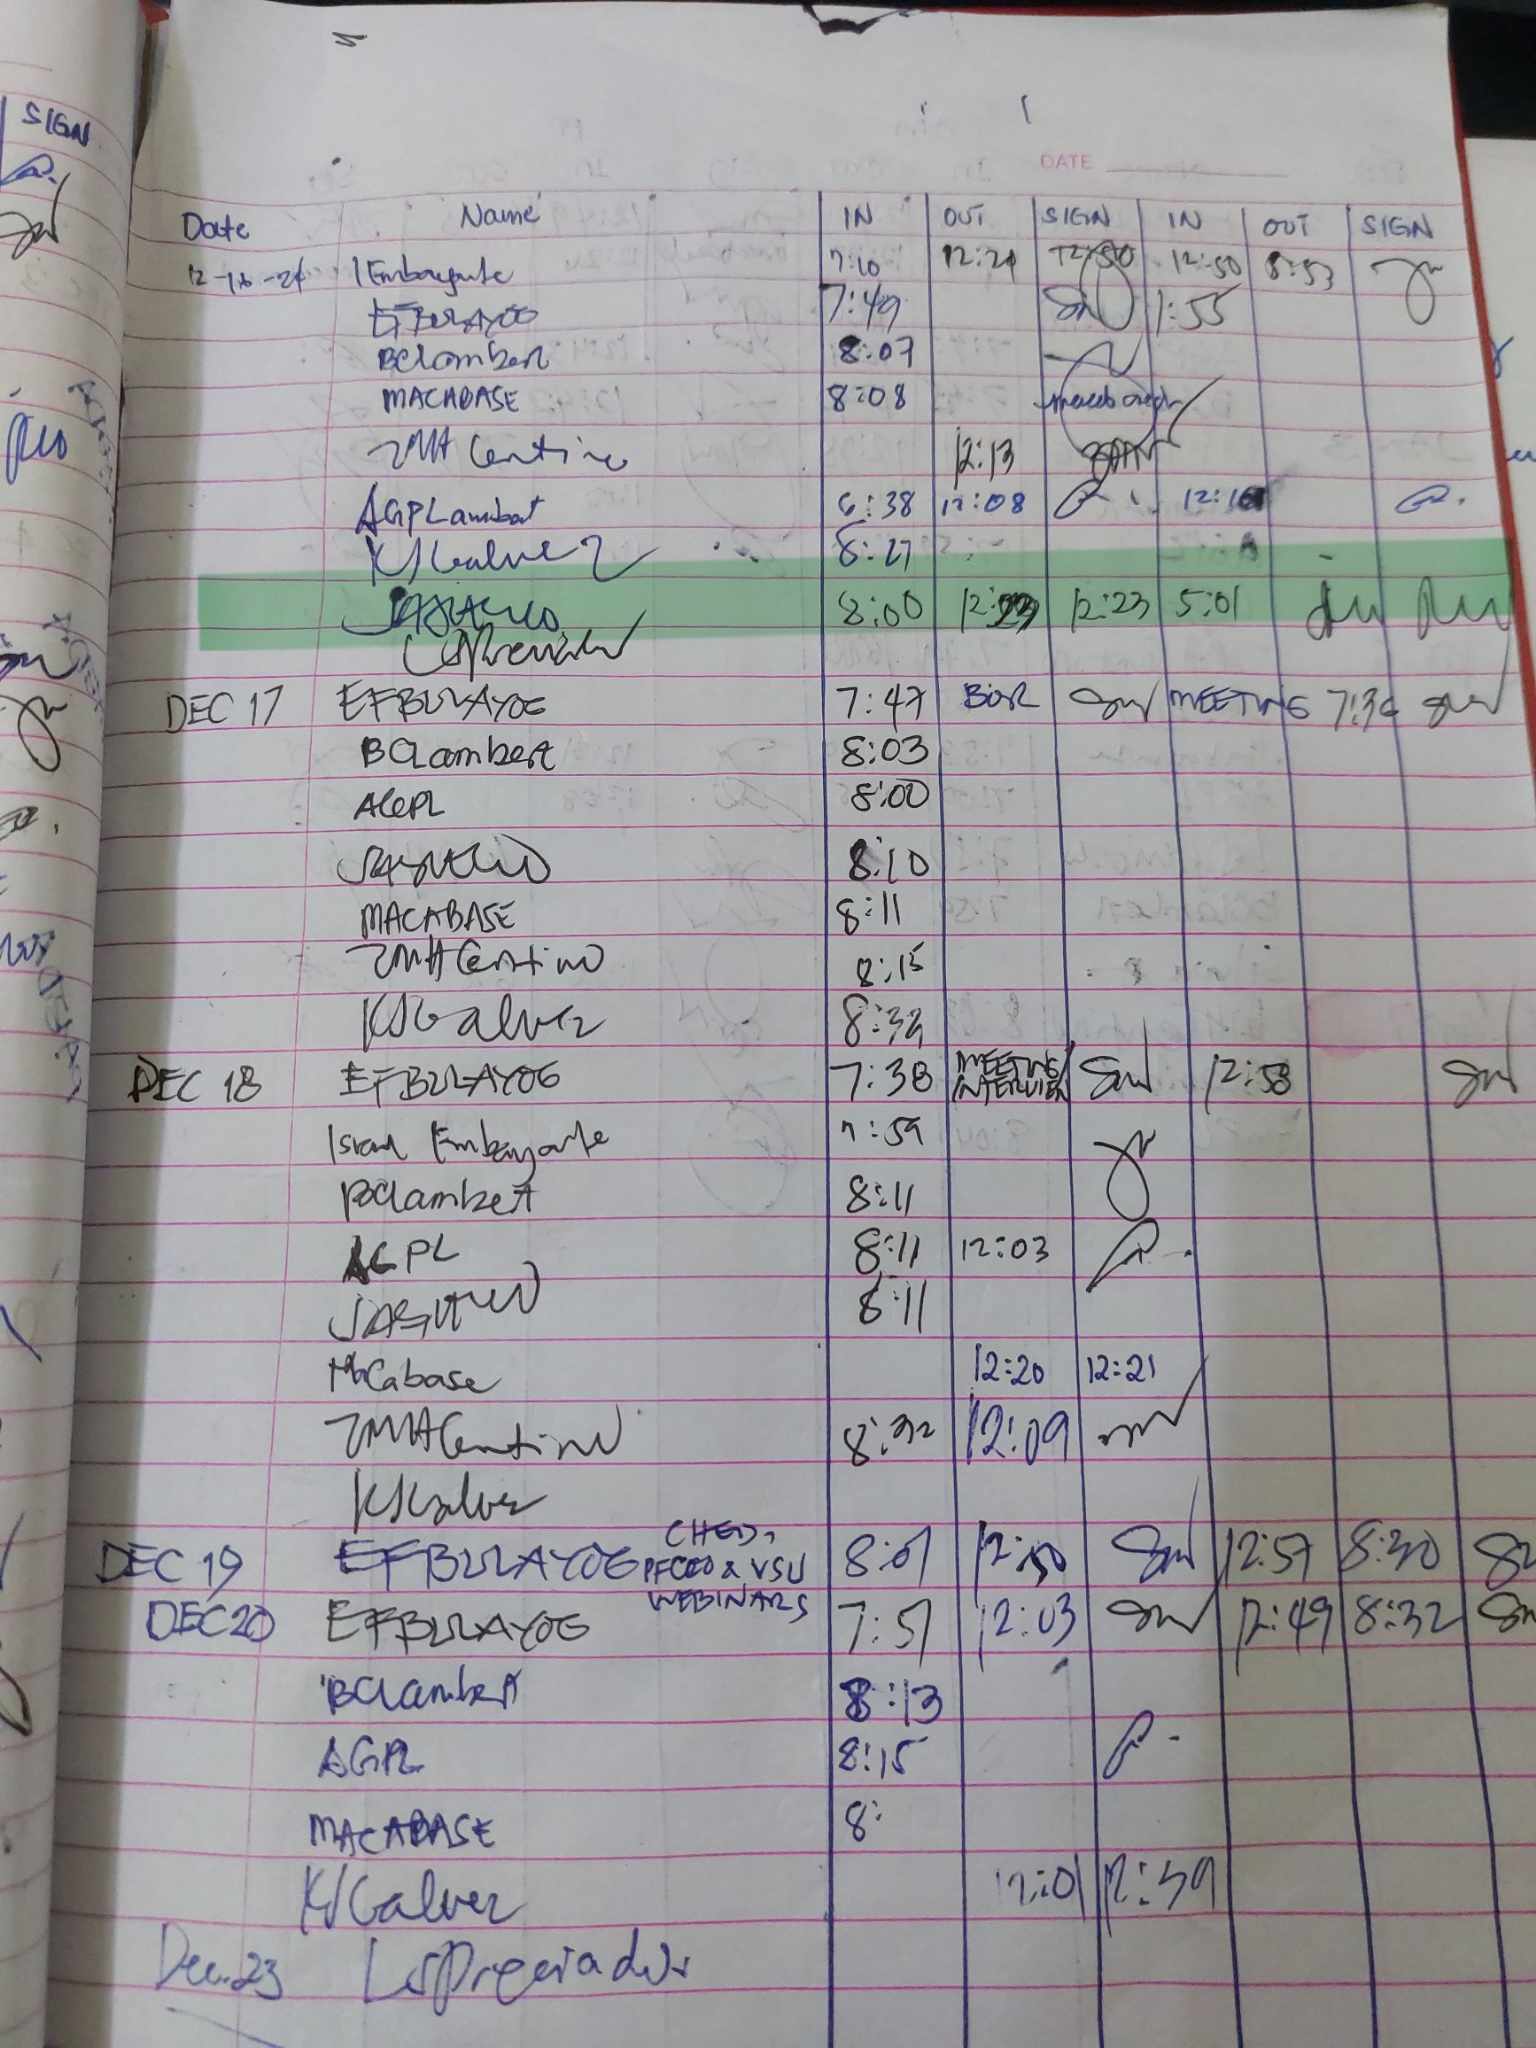 SIGN
DATE
Date Name IN OUT SIGN IN OUT SIGN
12-16-24 IEmbayarte 7:10 12:21 12:50 12:50 8:53
EFBULAYOG 7:49 1:55
BCLambert 8:07
MACABASE 8:08
ZMACentino 12:13
AGPLambert 6:38 12:08 12:16
KJGalvez 8:27
8:00 12:23 5:01
LSPreciador
DEC 17 EFBULAYOG 7:47 BOR MEETING 7:36
BCLambert 8:03
AGPL 8:00
8:10
MACABASE 8:11
ZMACentino 8:15
KJGalvez 8:32
DEC 18 EFBULAYOG 7:38 MEETING/ INTERVIEW 12:58
Israel Embayarte 7:59
BCLambert 8:11
AGPL 8:11 12:03
8:11
MACabase 12:20 12:21
ZMACentino 8:32 12:09
KJGalvez
DEC 19 EFBULAYOG CHED, & VSU WEBINARS 8:01 12:50 12:57 8:30
DEC 20 EFBULAYOG 7:51 12:03 12:49 8:32
BCLambert 8:13
AGPL 8:15
MACABASE 8:
KJGalvez 12:01 12:39
Dec. 23 LSPreciador